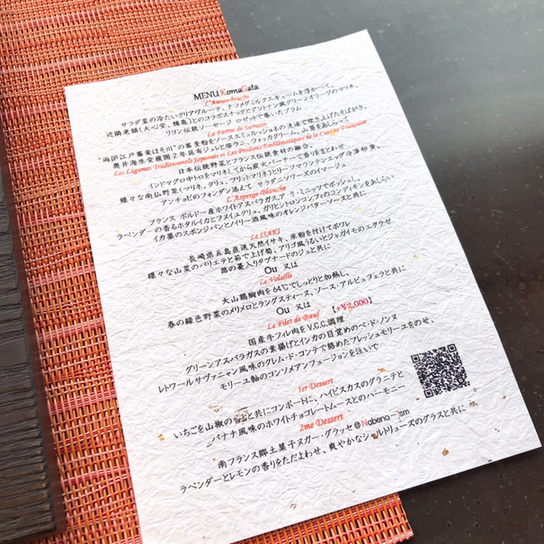 MENU KomaGata
L'Amuse-bouche
サラダ菜の冷たいクリアヴルーテ、ナツメグミルクエキュームを浮かべて、
近隣老舗(大心堂、種亀)とのコラボスナックとアントナン風グリーンオリーブのマリネ、
リヨン伝統ソーセージ ロゼットで巻いたプラム
La Farine de Sarrasin
"両許江戸蕎麦ほそ川"の蕎麦粉を
奥井海生堂蔵囲2年昆布ジュレと帰ウニ、ウォッカクリーム、山葵をあしらって
Les Légumes Traditionnels Japonais et Les Produits Emblématiques de la Cuisine Française
日本伝統野菜とフランス伝統食材の融合。
インドマグロ中トロをマリネしてから炭火バーナーで香りをまとわせ
様々な南仏野菜(マリネ、グリュ、フリット、マリネ)と
アンチョビのフォンダン添えて サラダニソワーズのイマージュ
L'Asperge Blanche
フランス・ボルドー産ホワイトアスパラガス、ア・ラ・ミニッツでポッシェし、
ラベンダーの香るホタルイカとフヌイユクリュ、
イカ墨のスポンジパンとノイリー酒風味のオレンジバターソースと共に
Le ISAKI
長崎県五島直送天然イサキ、米粉を付けてポワレ
様々な山菜のバリエテと筍で上げ筍、アリゴ風うるいとジャガイモのエクラゼ
蕗の薹入りタプナードのジュと共に
Ou 又は
La Volaille
大山鶏胸肉を64℃でしっとりと加熱し、
春の緑色野菜のメリメロとラングスティーヌ、ソース・アルビュフェラと共に
Ou 又は
Le Filet de Bœuf 【+¥2,000】
国産牛フィレ肉をV.C.C.調理
グリーンアスパラガスの素揚げとインカの目覚めのペ・ド・ノンヌ
レトワールサヴァニャン風味のクレム・ド・コンテで絡めたフレッシュモリーユをのせ、
モリーユ軸のコンソメアンフュージョンを注いで
1er Dessert
いちごを山椒の香りと共にコンポートに、ハイビスカスのグラニテと
バナナ風味のホワイトチョコレートムースとのハーモニー
2me Dessert
南フランス郷土菓子ヌガー・グラッセ@Nobeno-Ism
ラベンダーとレモンの香りをただよわせ、爽やかなシャルトリューズのグラスと共に